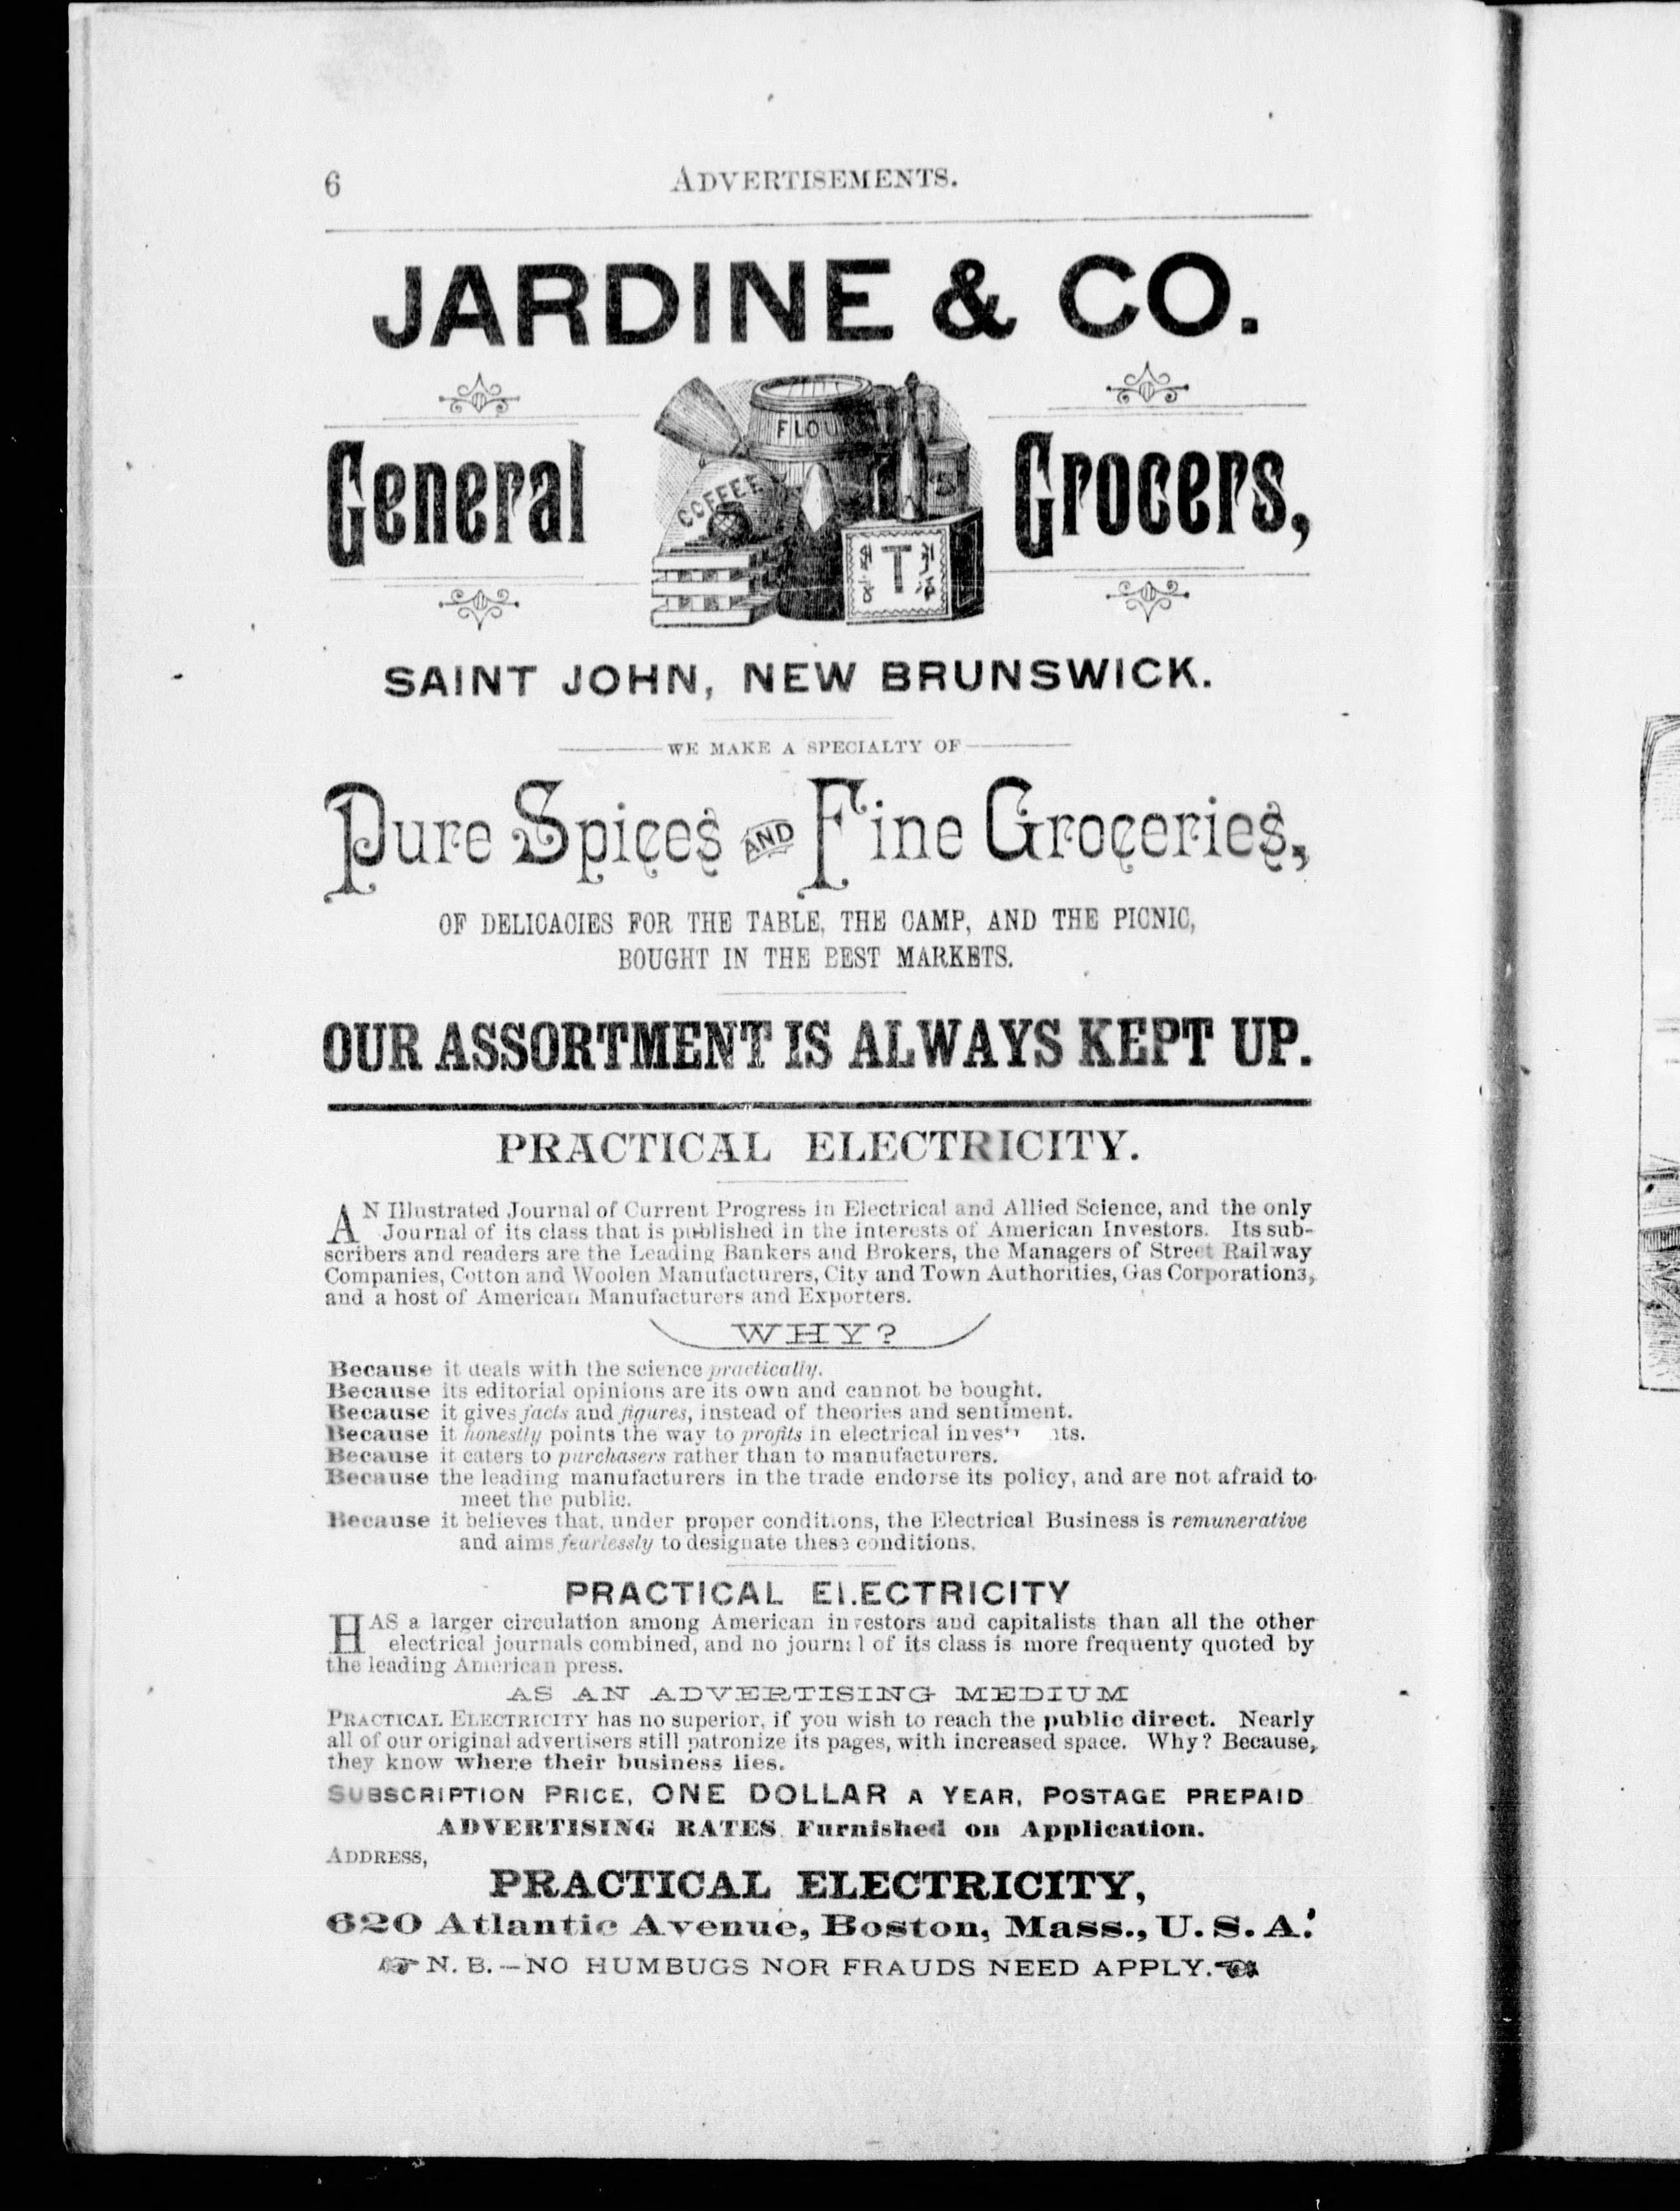 6 ADVERTISEMENTS.
JARDINE & CO.
General Grocers,
FLOUR
COFFEE
T
SAINT JOHN, NEW BRUNSWICK.
WE MAKE A SPECIALTY OF
Pure Spices AND Fine Groceries,
OF DELICACIES FOR THE TABLE, THE CAMP, AND THE PICNIC,
BOUGHT IN THE BEST MARKETS.
OUR ASSORTMENT IS ALWAYS KEPT UP.
PRACTICAL ELECTRICITY.
AN Illustrated Journal of Current Progress in Electrical and Allied Science, and the only
Journal of its class that is published in the interests of American Investors. Its sub-
scribers and readers are the Leading Bankers and Brokers, the Managers of Street Railway
Companies, Cotton and Woolen Manufacturers, City and Town Authorities, Gas Corporations,
and a host of American Manufacturers and Exporters.
WHY?
Because it deals with the science practically.
Because its editorial opinions are its own and cannot be bought.
Because it gives facts and figures, instead of theories and sentiment.
Because it honestly points the way to profits in electrical
Because it caters to purchasers rather than to manufacturers.
Because the leading manufacturers in the trade endorse its policy, and are not afraid to
meet the public.
Because it believes that, under proper conditions, the Electrical Business is remunerative
and aims fearlessly to designate these conditions.
PRACTICAL ELECTRICITY
HAS a larger circulation among American investors and capitalists than all the other
electrical journals combined, and no journal of its class is more frequenty quoted by
the leading American press.
AS AN ADVERTISING MEDIUM
PRACTICAL ELECTRICITY has no superior, if you wish to reach the public direct. Nearly
all of our original advertisers still patronize its pages, with increased space. Why? Because,
they know where their business lies.
SUBSCRIPTION PRICE, ONE DOLLAR A YEAR, POSTAGE PREPAID
ADVERTISING RATES Furnished on Application.
ADDRESS,
PRACTICAL ELECTRICITY,
620 Atlantic Avenue, Boston, Mass., U. S. A.
N. B.—NO HUMBUGS NOR FRAUDS NEED APPLY.